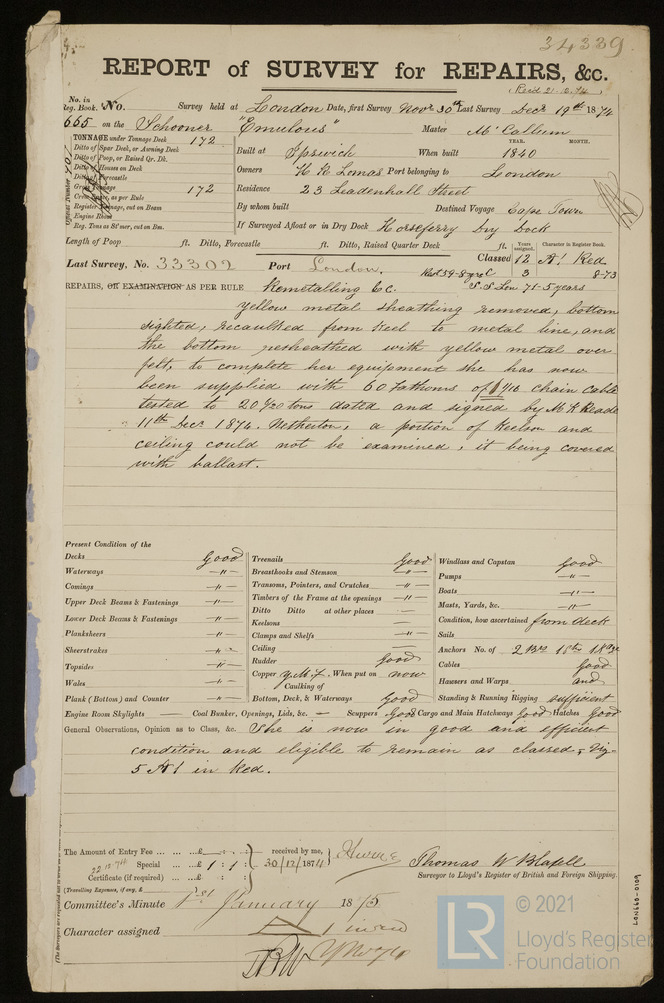 34339
REPORT of SURVEY for REPAIRS, &c.
No. in Reg. Book. No. Survey held at London Date, first Survey Novr 30th Last Survey Decr 19th 1874
665 on the Schooner "Emulous" Master McCallum
TONNAGE under Tonnage Deck 172
YEAR. MONTH.
Ditto of Spar Deck, or Awning Deck
Built at Ipswich When built 1840
Ditto of Poop, or Raised Qr. Dk.
Ditto of Houses on Deck
Owners H R Lomas Port belonging to London
Ditto of Forecastle
Gross Tonnage 172
Residence 23 Leadenhall Street
Crew Space, as per Rule
Register Tonnage, cut on Beam
By whom built Destined Voyage Cape Town
Engine Room
Reg. Tons as St'mer, cut on Bm.
If Surveyed Afloat or in Dry Dock Horseferry Dry Dock
Length of Poop ft. Ditto, Forecastle ft. Ditto, Raised Quarter Deck ft.
Years assigned. Character in Register Book.
Last Survey, No. 33302 Port London. Classed 12 A1 Red
3 8-73
REPAIRS, OR EXAMINATION AS PER RULE Remetalling &c. S.S Lon 71-5 years
Yellow metal sheathing removed, bottom
sighted, recaulked from keel to metal line, and
the bottom resheathed with yellow metal over
felt, to complete her equipment she has now
been supplied with 60 Fathoms of 1 1/16 chain cable
tested to 20 tons dated and signed by M. R Reade
11th Decr 1874. Netherton, a portion of Keelson and
ceiling could not be examined, it being covered
with ballast.
Present Condition of the
Decks Good
Waterways —"—
Comings —"—
Upper Deck Beams & Fastenings —"—
Lower Deck Beams & Fastenings —"—
Planksheers —"—
Sheerstrakes —"—
Topsides —"—
Wales —"—
Plank (Bottom) and Counter —"—
Treenails Good
Breasthooks and Stemson —"—
Transoms, Pointers, and Crutches —"—
Timbers of the Frame at the openings —"—
Ditto Ditto at other places —
Keelsons —
Clamps and Shelfs —"—
Ceiling —
Rudder Good
Copper Y.M.F. When put on now
Caulking of
Bottom, Deck, & Waterways Good
Windlass and Capstan Good
Pumps —"—
Boats —"—
Masts, Yards, &c. —"—
Condition, how ascertained from deck
Sails
Anchors No. of
Cables Good
Hawsers and Warps and
Standing & Running Rigging sufficient
Engine Room Skylights — Coal Bunker, Openings, Lids, &c. — Scuppers Good Cargo and Main Hatchways Good Hatches Good
General Observations, Opinion as to Class, &c. She is now in good and efficient
condition and eligible to remain as classed, Viz-
5 A1 in Red.
The Amount of Entry Fee ... ... £ : :
22.12.74 Special ... ... £ 1 : 1 :
Certificate (if required) ... £ : :
(Travelling Expenses, if any, £
received by me,
30/12/1874
Thomas W Blabell
Surveyor to Lloyd's Register of British and Foreign Shipping.
Committee's Minute 1st January 1875
Character assigned A 1 in red
LON660-0109
LR
© 2021
Lloyd's Register
Foundation